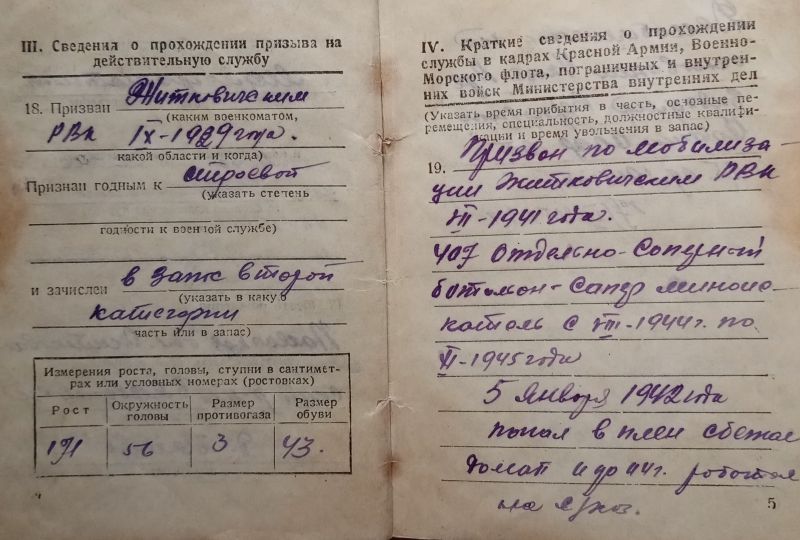 III. Сведения о прохождении призыва на
действительную службу
18. Призван Житковичским
(каким военкоматом,
РВК IX-1929 года.
какой области и когда)
Признан годным к строевой
(указать степень
годности к военной службе)
и зачислен в запас второй
(указать в какую
категории
часть или в запас)
Измерения роста, головы, ступни в сантимет-
рах или условных номерах (ростовках)
Рост Окружность головы Размер противогаза Размер обуви
171 56 3 43.
IV. Краткие сведения о прохождении
службы в кадрах Красной Армии, Военно-
Морского флота, пограничных и внутрен-
них войск Министерства внутренних дел
(Указать время прибытия в часть, основные пе-
ремещения, специальность, должностные квалифи-
кации и время увольнения в запас)
19. Призван по мобилиза
ции Житковичским РВК
1941 года.
407 Отдельно-Саперный
батальон-Сапер
с VIII-1944г. по
XI-1945 года
5 января 1942 года
попал в плен сбежал
домап и до 44г. работал
на
5